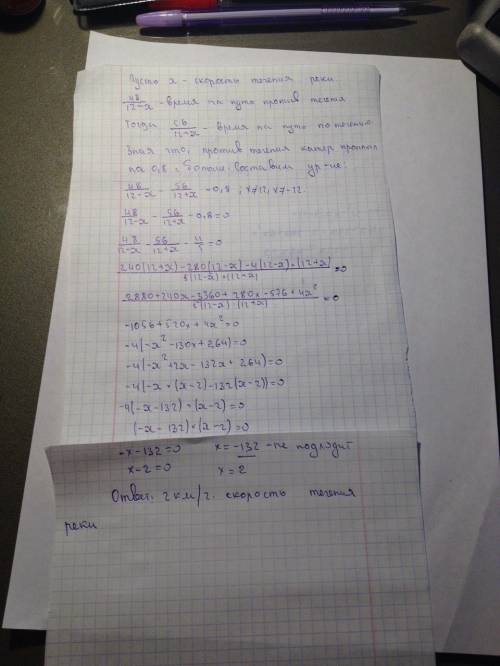 Пусть x - скорость течения реки
48/12-x - время на путь против течения
Тогда 56/12+x - время на путь по течению
Зная что, против течения катер проплыл
на 0,8 ч больше, составим ур-ие:
48/12-x - 56/12+x = 0,8 ; x≠12, x≠-12.
48/12-x - 56/12+x - 0,8 = 0
48/12-x - 56/12+x - 4/5 = 0
240(12+x)-280(12-x)-4(12-x)*(12+x)/5(12-x)*(12+x) = 0
2880+240x-3360+280x-576+4x²/5(12-x)*(12+x) = 0
-1056+520x+4x²=0
-4(-x²-130x+264)=0
-4(-x²+2x-132x+264)=0
-4(-x*(x-2)-132(x-2))=0
-4(-x-132)*(x-2)=0
(-x-132)*(x-2)=0
-x-132=0 x=-132 - не подходит
x-2=0 x=2
Ответ: 2 км/ч. скорость течения
реки